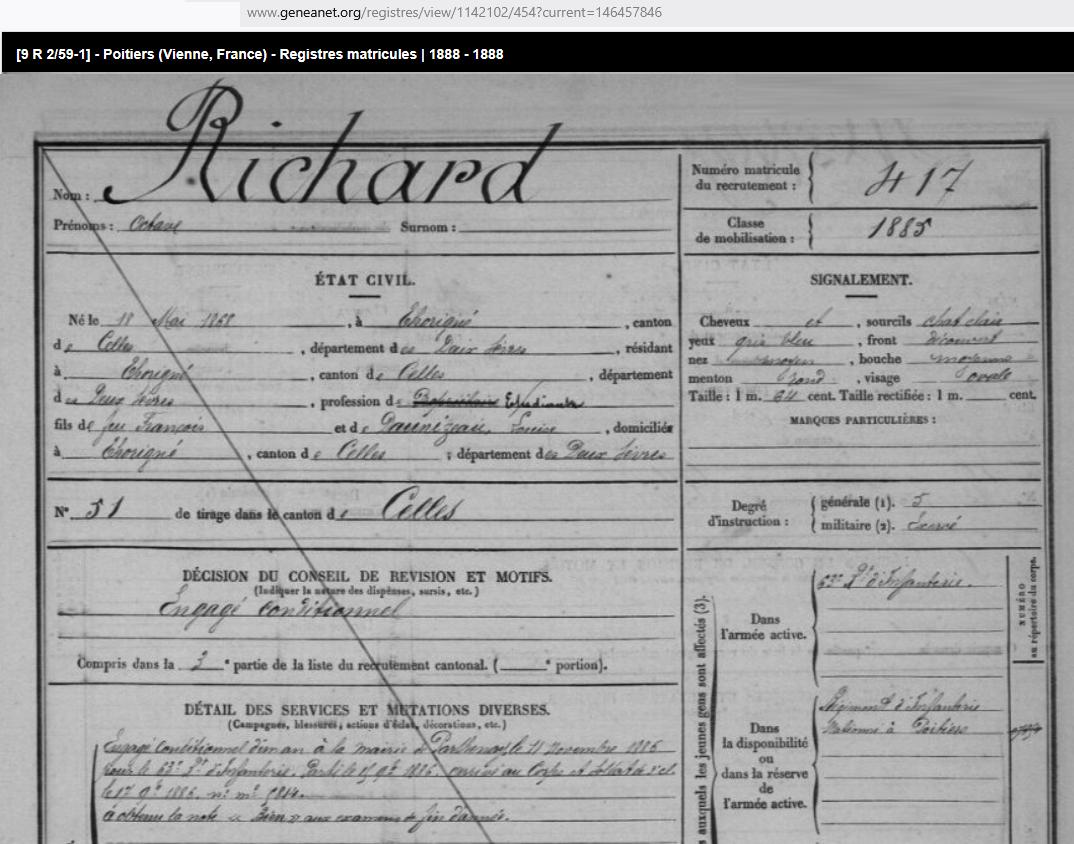 www.geneanet.org/registres/view/1142102/454?current=146457846
[9 R 2/59-1] - Poitiers (Vienne, France) - Registres matricules | 1888 - 1888
Nom : Richard
Prénoms : Octave Surnom :
Numéro matricule du recrutement : 417
Classe de mobilisation : 1885
ÉTAT CIVIL.
Né le 18 Mai 1868, à Thorigné, canton
de Celles, département des Deux Sèvres, résidant
à Thorigné, canton de Celles, département
des Deux Sèvres, profession de Propriétaire Etudiant
fils de feu François et de Daunizeau, Louise, domiciliés
à Thorigné, canton de Celles, département des Deux Sèvres
SIGNALEMENT.
Cheveux et, sourcils chat clair
yeux gris bleu, front découvert
nez moyen, bouche moyenne
menton rond, visage ovale
Taille : 1 m. 64 cent. Taille rectifiée : 1 m. cent.
MARQUES PARTICULIÈRES :
N° 51 de tirage dans le canton de Celles
Degré d'instruction : générale (1). 3
militaire (2). Exercé
DÉCISION DU CONSEIL DE REVISION ET MOTIFS.
(Indiquer la nature des dispenses, sursis, etc.)
Engagé conditionnel
Compris dans la 3e partie de la liste du recrutement cantonal. ( e portion).
DÉTAIL DES SERVICES ET MUTATIONS DIVERSES.
(Campagnes, blessures, actions d'éclat, décorations, etc.)
Engagé Conditionnel d'un an à la mairie de Parthenay le 11 Novembre 1886
pour le 63e Rt d'Infanterie. Parti le 9bre 1886, arrivé au Corps et soldat de 2e cl.
le 17 9bre 1886. no ml
à obtenu la note « Bien » aux examens de fin d'année.
auxquels les jeunes gens sont affectés (3).
NUMÉRO au répertoire du corps.
Dans l'armée active. 63e Rt d'Infanterie.
Dans la disponibilité ou dans la réserve de l'armée active. Régiment d'Infanterie
stationné à Poitiers